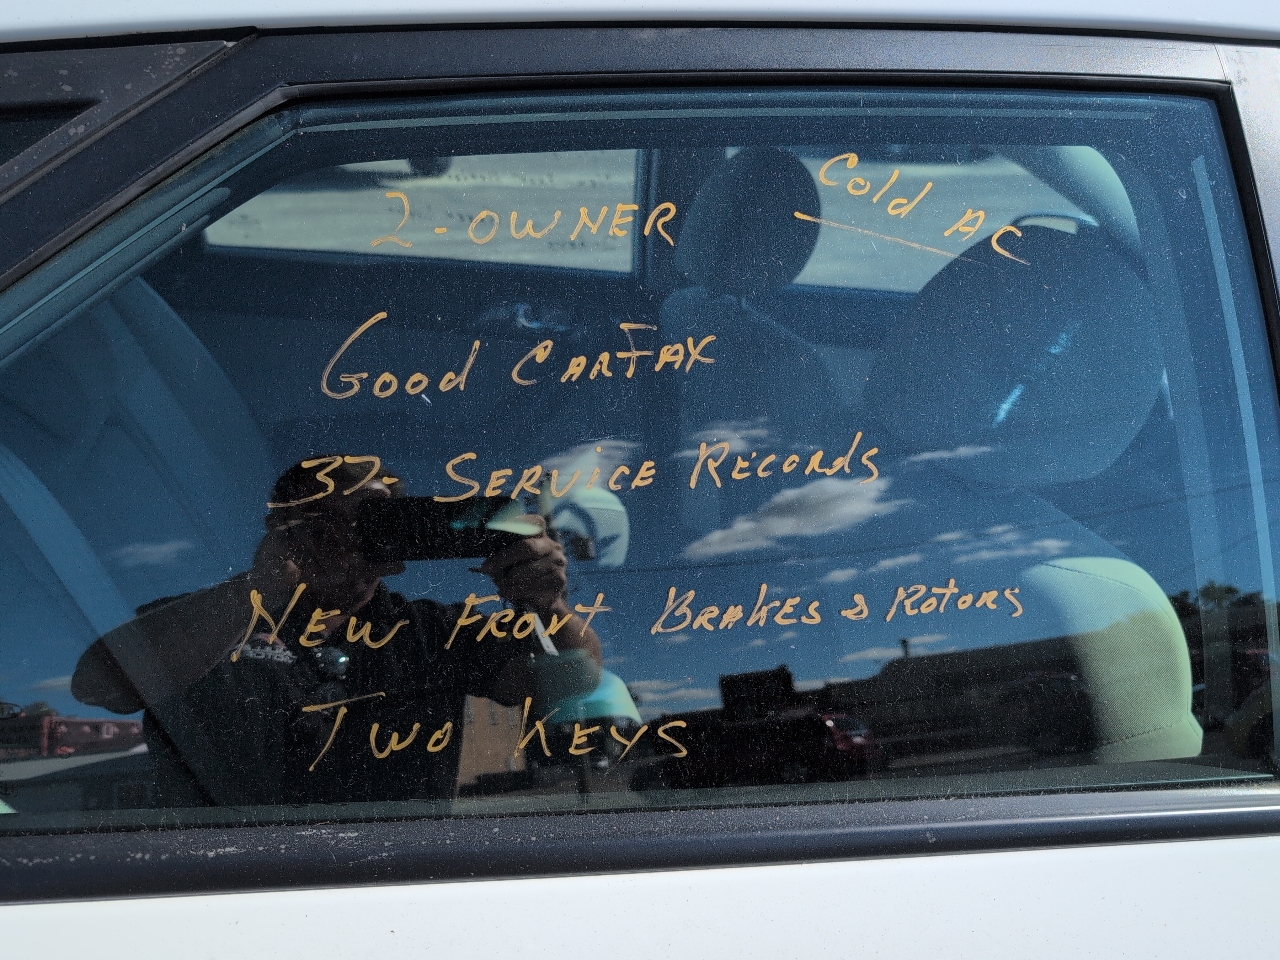 2-OWNER
Cold AC
Good CARFAX
37- SERVICE RECORdS
NEW FRONT BRAKES & ROTORS
TWO KEYS